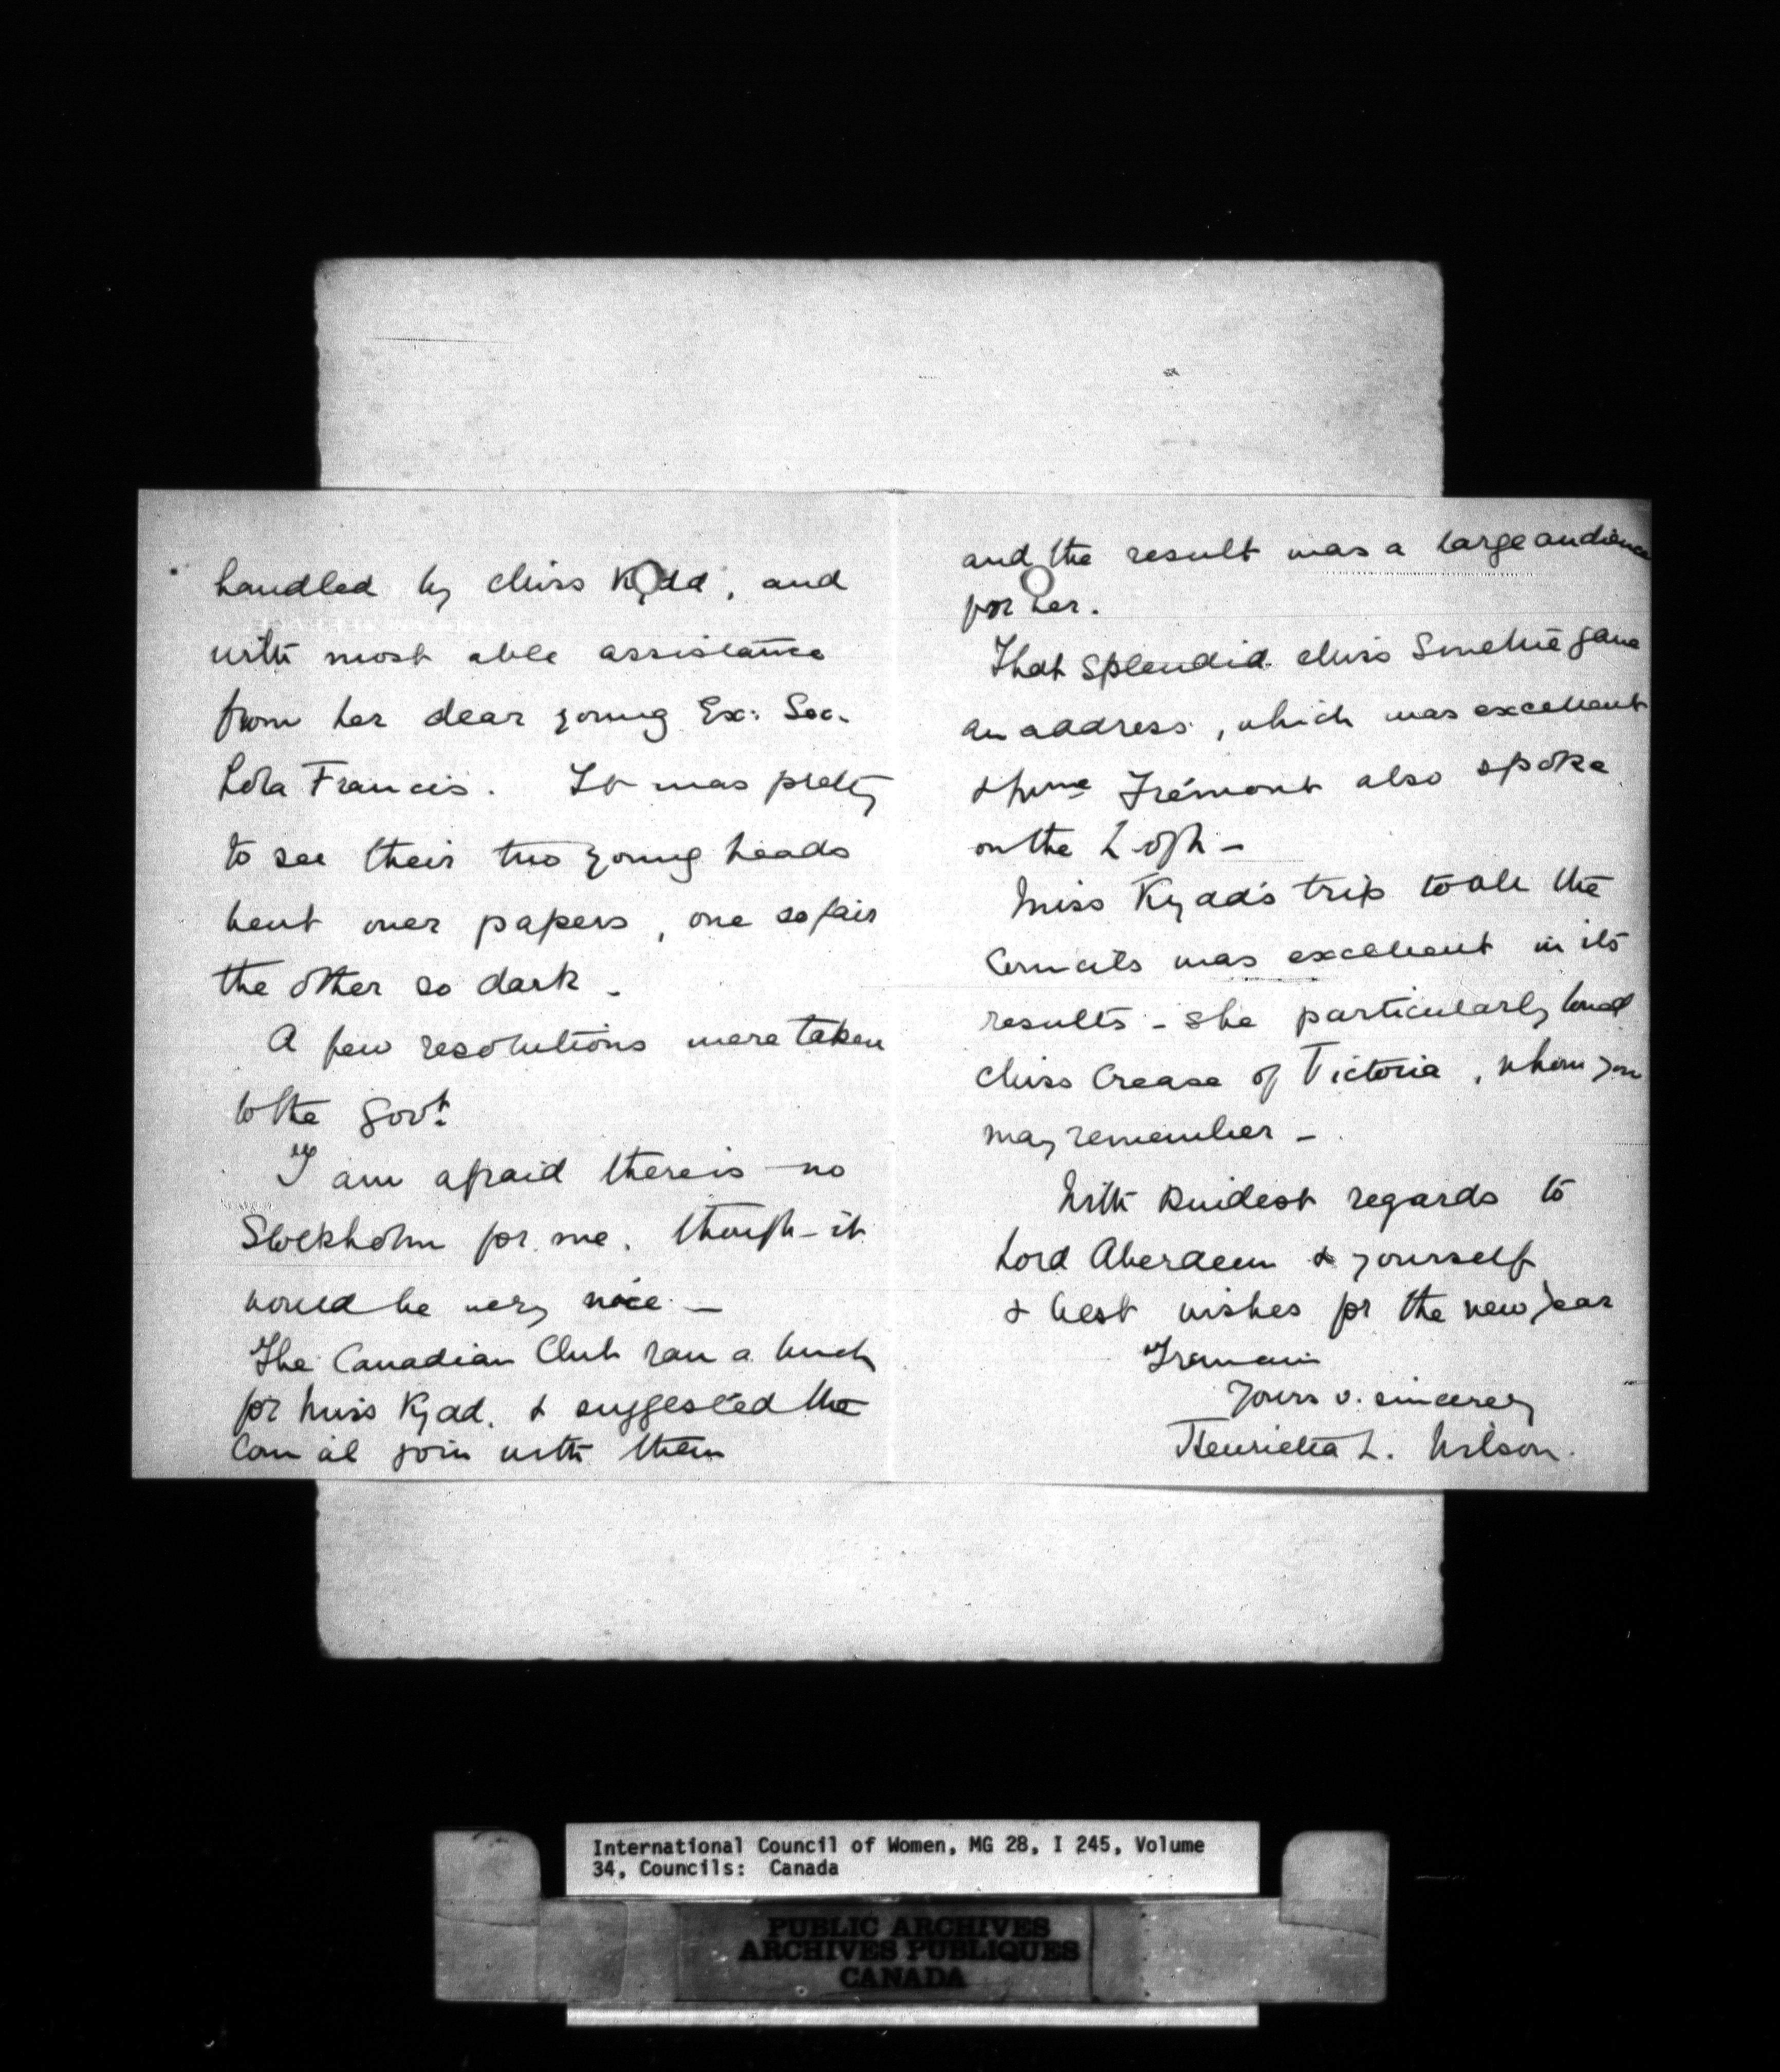 handled by Miss Kydd, and
with most able assistance
from her dear young Ex: Sec.
Lola Francis. It was pretty
to see their two young heads
bent over papers, one so fair
the other so dark –
A few resolutions were taken
to the Govt.
I am afraid there is no
Stockholm for me, though it
would be very nice –
The Canadian Club ran a lunch
for Miss Kydd, & suggested the
Council join with them
and the result was a large audience
for her.
That splendid Miss Smellie gave
an address, which was excellent
& Mme Frémont also spoke
on the L. of N –
Miss Kydd's trip to all the
Councils was excellent in its
results – she particularly loved
Miss Crease of Victoria, whom you
may remember –
With kindest regards to
Lord Aberdeen & yourself
& best wishes for the new year
I remain
Yours v. sincerely
Henrietta L. Wilson.
International Council of Women, MG 28, I 245, Volume
34, Councils: Canada
PUBLIC ARCHIVES
ARCHIVES PUBLIQUES
CANADA